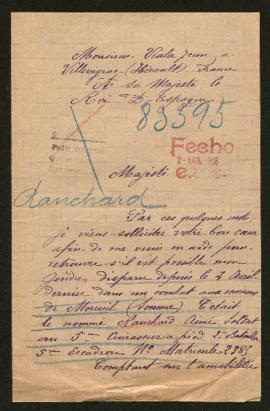 Monsieur Viala Jean a
Villeveyrac (Hérault) France
A sa Majesté le
Roi D'Espagne
83595
Fecho
2-AGO. 918
Majesté
Ranchard
Par ces quelques mots
je viens solliciter votre bon cœur
afin de me venir en aide pour
retrouver s'il est possible mon
gendre disparu depuis le 4 Avril
dernier dans un combat aux environs
de Moreuil (Somme) C'était
le nommé Ranchard Aimé Soldat
au 5me Cuirassier a pied 2e Bataillon
5me Escadron No Matricule 238
Comptant sur l'amabilité